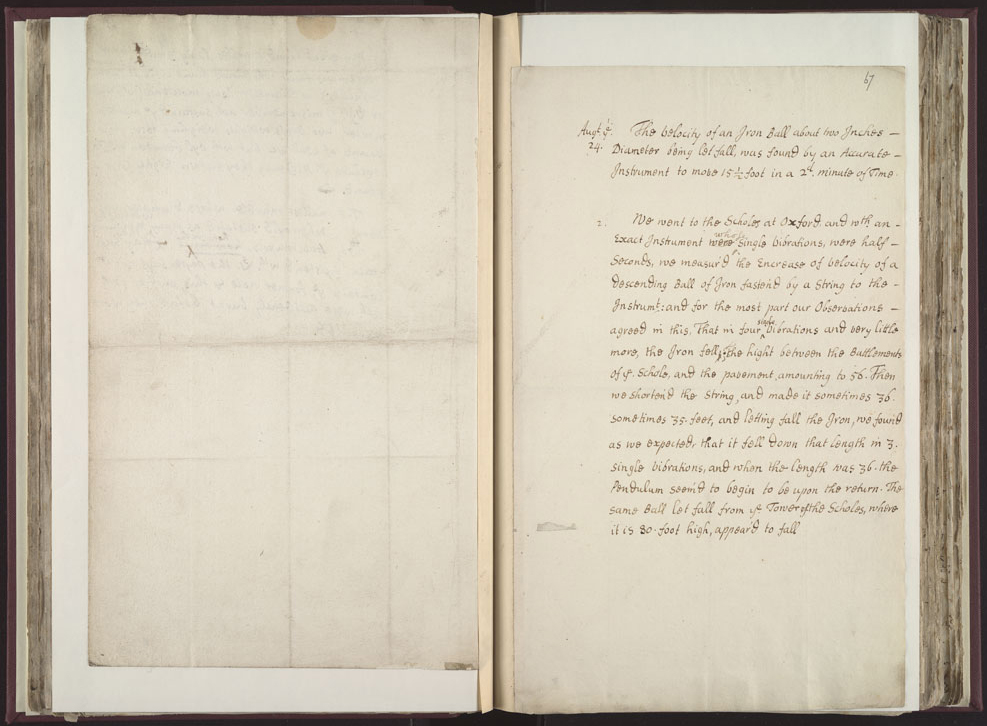 67
Augt. ye. The velocity of an Iron Ball about two Inches –
24. Diameter being let fall, was found by an Accurate –
Instrument to move 15 1/2 foot in a 2d. minute of Time.
2. We went to the Scholes at Oxford, and wth an –
whose
Exact Instrument were single vibrations, were half –
Seconds, we measur'd the Encrease of velocity of a
descending Ball of Iron fastend by a String to the –
Instrumt: and for the most part our Observations –
single
agreed in this, That in four ^ vibrations and very little
more, the Iron fell, the hight between the Battlements
of ye. Schole, and the pavement, amounting to 56. Then
we shorten'd the String, and made it sometimes 36.
sometimes 35. feet, and letting fall the Iron, we found
as we expected, that it fell down that length in 3.
single vibrations, and when the length was 36. the
Pendulum seem'd to begin to be upon the return. The
same Ball let fall from ye Tower of the Scholes, where
it is 80. foot high, appear'd to fall